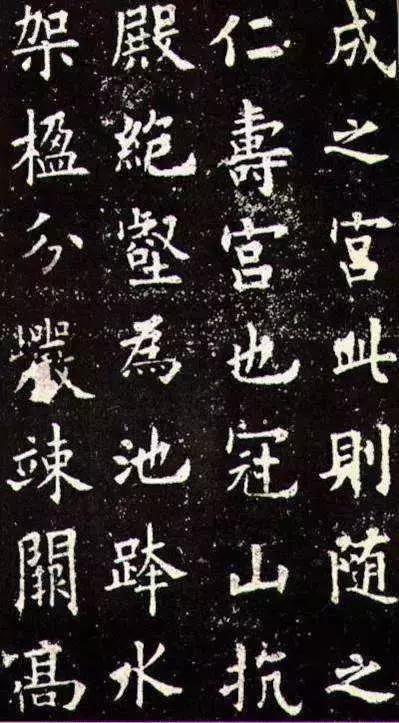 成之宮此則随之
仁壽宮也冠山抗
殿絶壑為池跨水
架楹分巖竦闕高